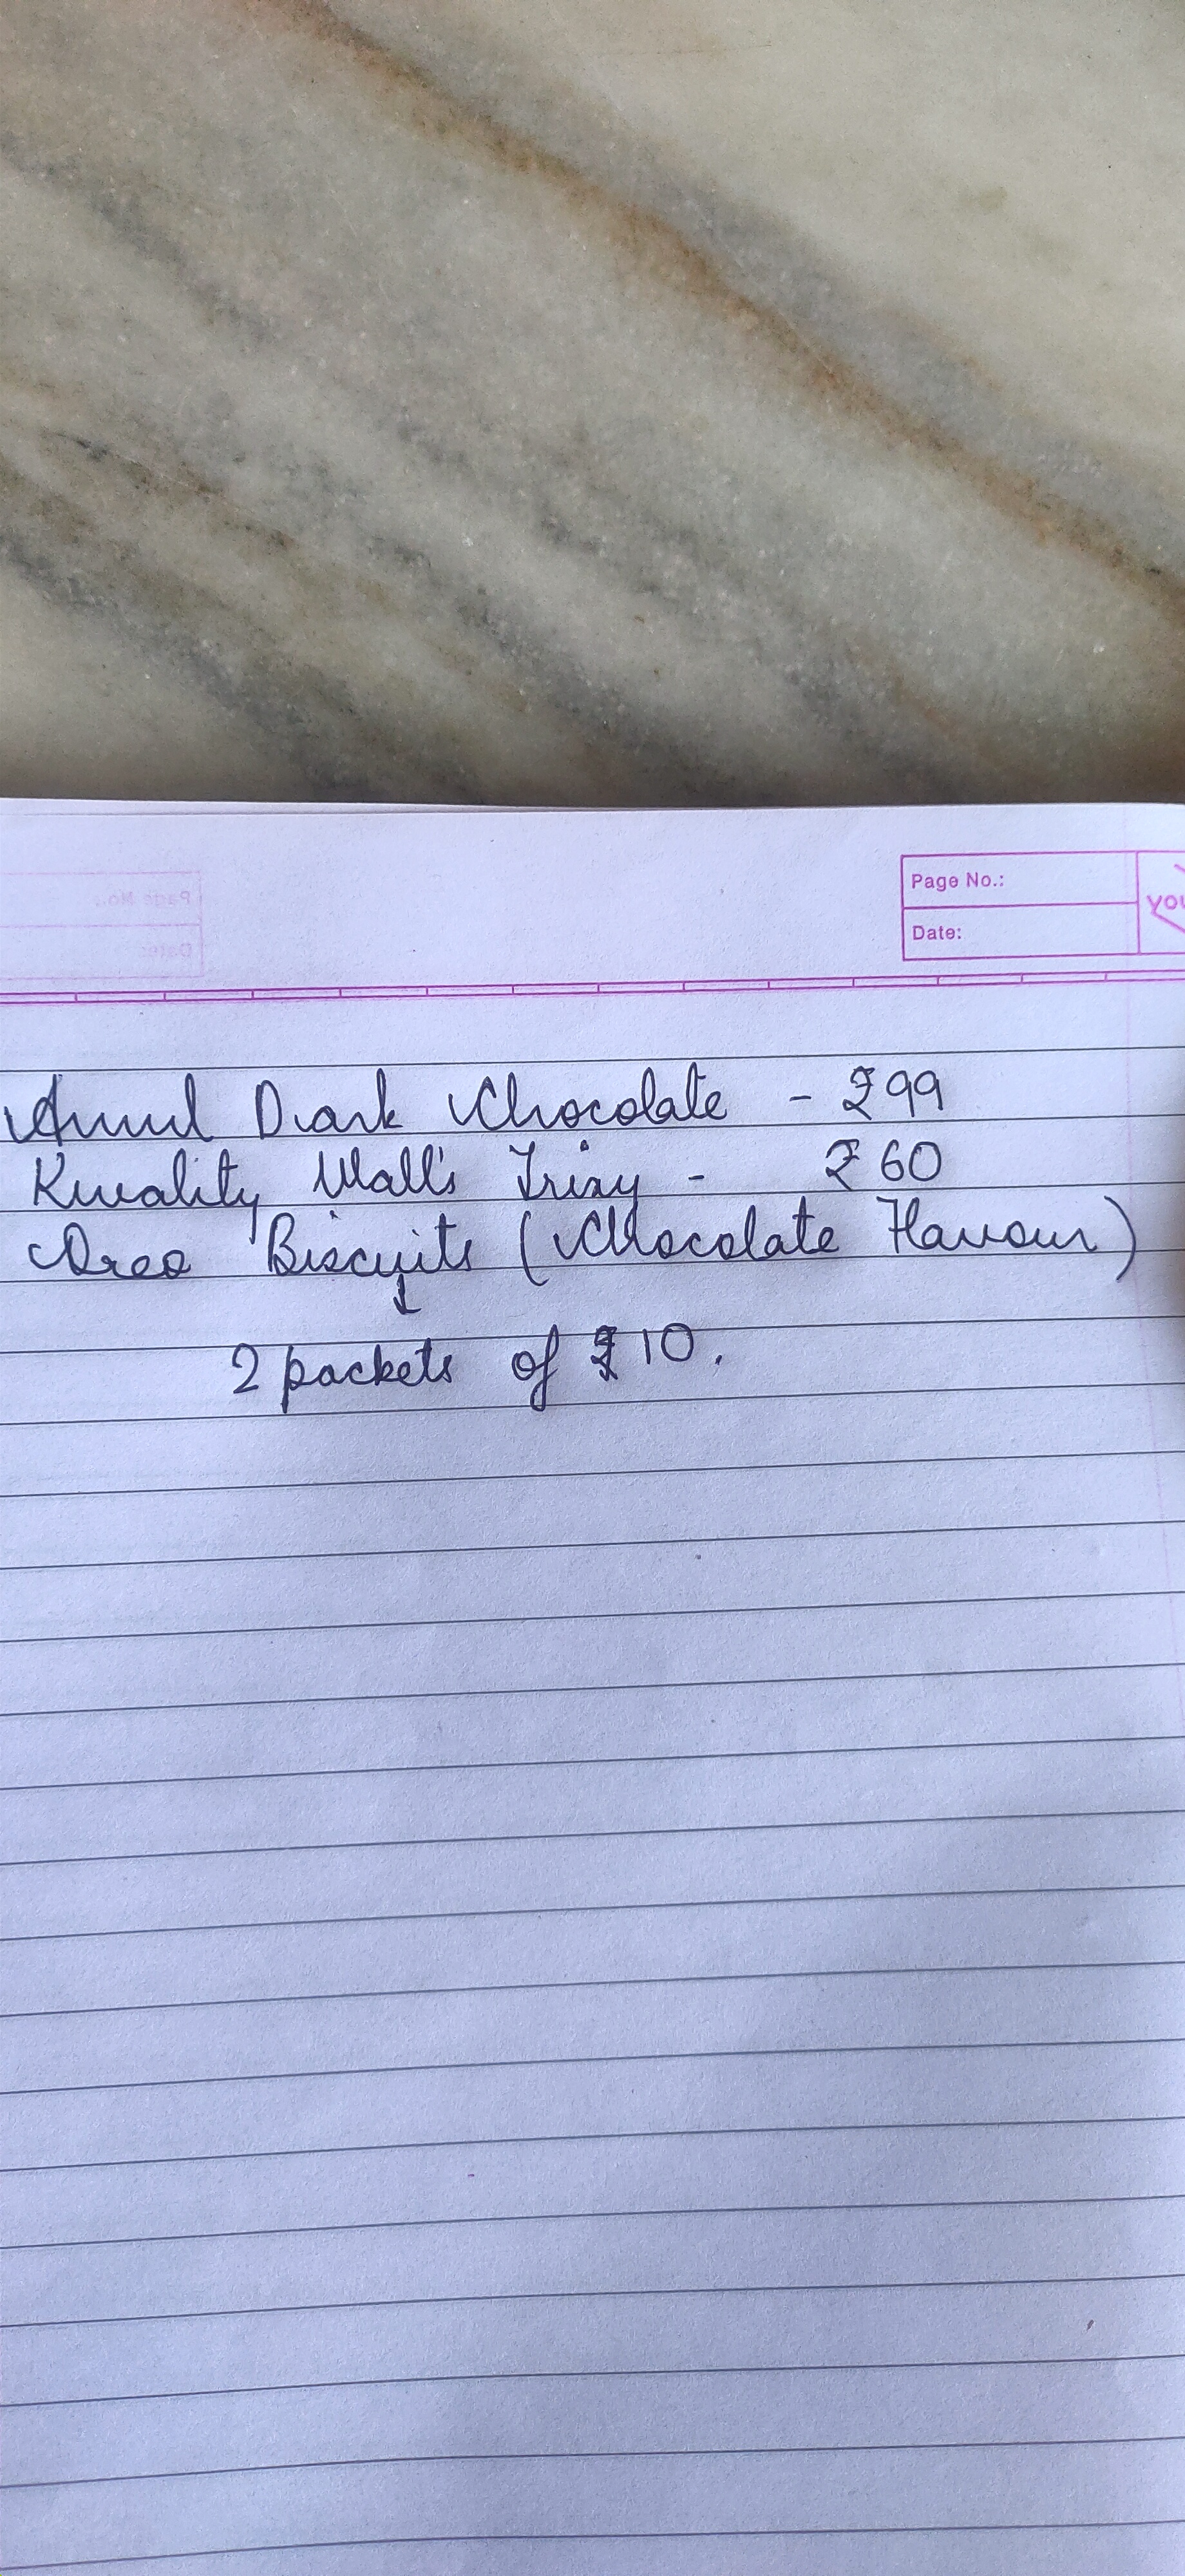 Page No.:
Date:
Amul Dark Chocolate - ₹99
Kwality Wall's Trixy - ₹60
Oreo Biscuits (Chocolate Flavour)
↓
2 packets of ₹10.